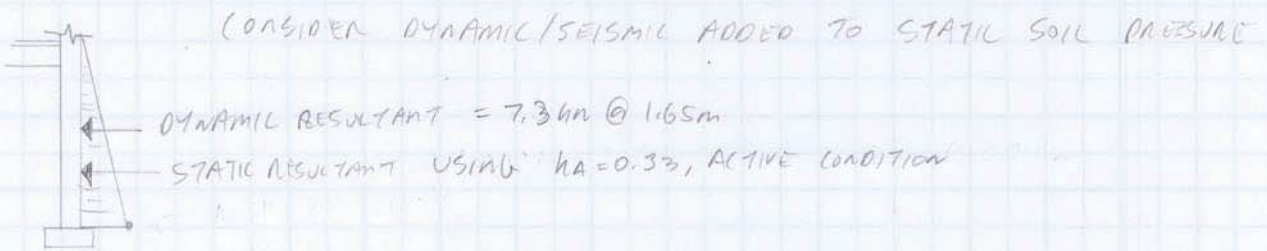 CONSIDER DYNAMIC/SEISMIC ADDED TO STATIC SOIL PRESSURE
DYNAMIC RESULTANT = 7.3 kn @ 1.65m
STATIC RESULTANT USING kA = 0.33, ACTIVE CONDITION